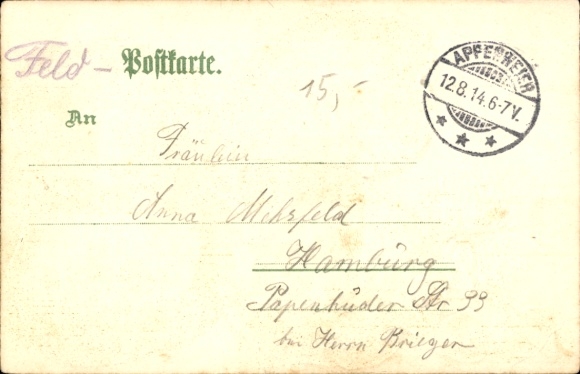 Feld - Postkarte.
15,-
APPENWEIER
12.8.14.6-7V.
An
Fräulein
Anna Mehsfeld
Hamburg
Papenhuder Str 33
bei Herrn Krieger